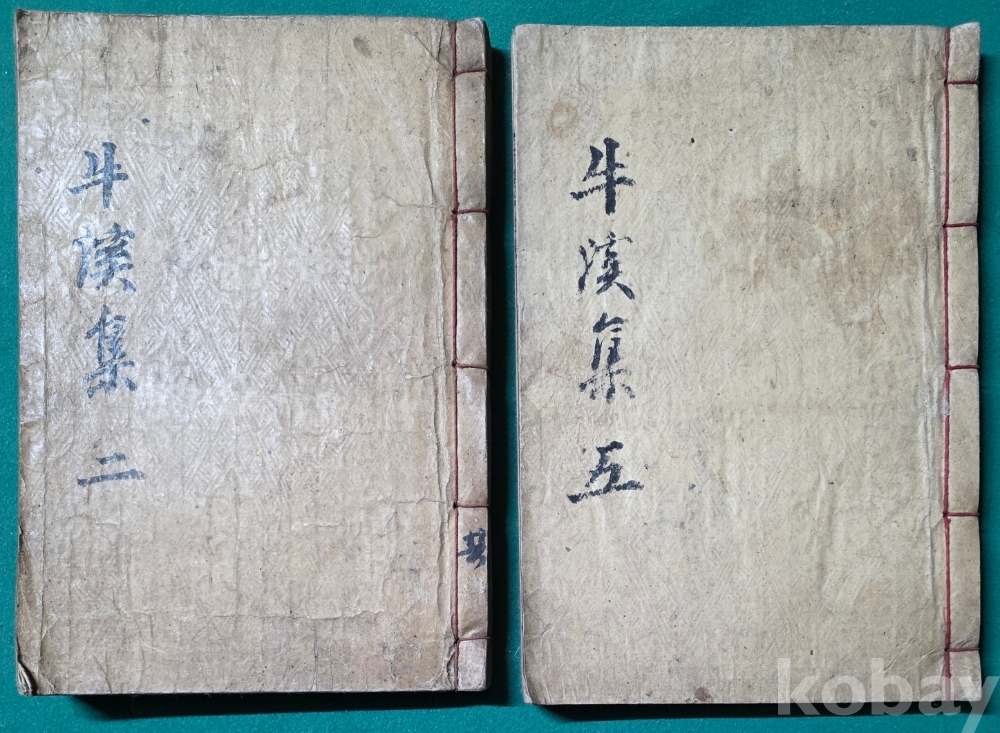 牛溪集 二
共
牛溪集 五
kobay